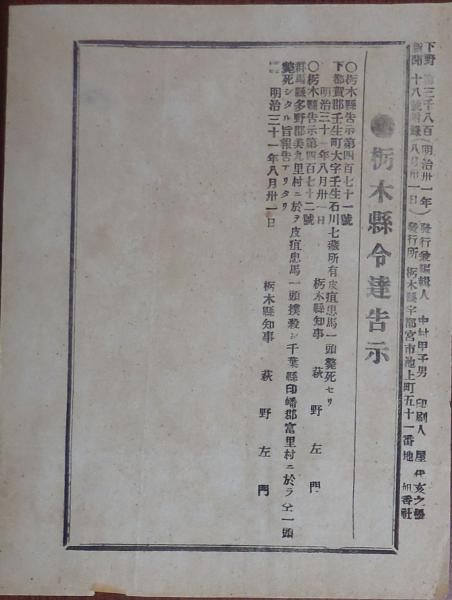 下野新聞 第三千八百十八號附錄(明治卅一年八月卅一日) 發行兼編輯人 中村甲子男 印刷人 屋代亥之 發行所 栃木縣宇都宮市池上町五十一番地 旭香社
栃木縣令達告示
〇栃木縣告示第四百七十一號
下都賀郡壬生町大字壬生石川七 所有皮疽患馬一頭斃死セリ
明治三十一年八月卅一日 栃木縣知事 萩野左門
〇栃木縣告示第四百七十二號
群馬縣多野郡美九里村ニ於テ皮疽患馬一頭撲殺シ千葉縣印幡郡富里村ニ於テ仝一頭
斃死シタル旨報告アリタリ
明治三十一年八月卅一日 栃木縣知事 萩野左門